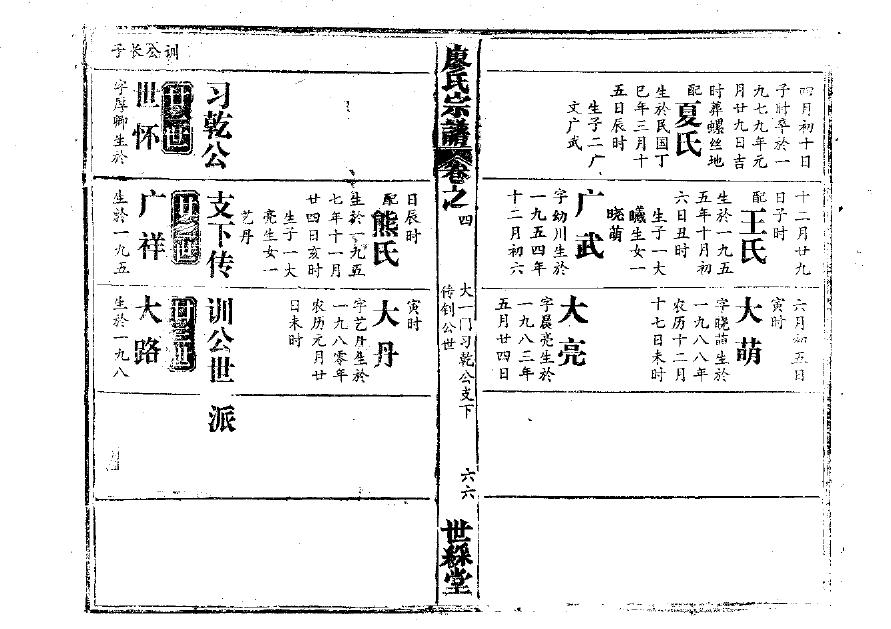 四月初十日
子时卒於一
九七九年元
月廿九日吉
时葬螺丝地
配夏氏
生於民国丁
巳年三月十
五日辰时
生子二广
文广武
十二月廿九
日子时
配王氏
生於一九五
五年十月初
六日丑时
生子一大
曦生女一
晓萌
广武
字幼川生於
一九五四年
十二月初六
六月初五日
寅时
大萌
字晓萌生於
一九八八年
农历十二月
十七日未时
大亮
字晨亮生於
一九八三年
五月廿四日
廖氏宗譜卷之四
大一门习乾公支下
传钊公世
六六
世綵堂
日辰时
配熊氏
生於一九五
七年十一月
廿四日亥时
生子一大
亮生女一
艺丹
寅时
大丹
字艺丹生於
一九八零年
农历元月廿
日未时
习乾公支下传训公世派
训公长子
世怀
字厚卿生於
广祥
生於一九五
大路
生於一九八